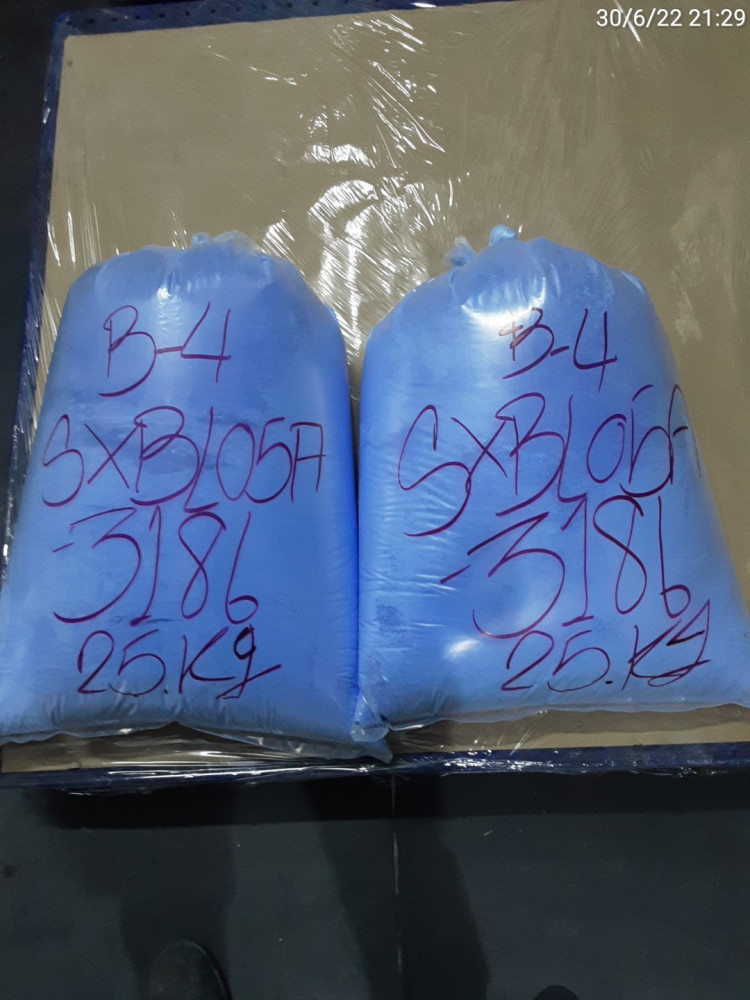 30/6/22 21:29
B-4
SXBL05A
-3186
25.Kg
B-4
SXBL05A
-3186
25.Kg